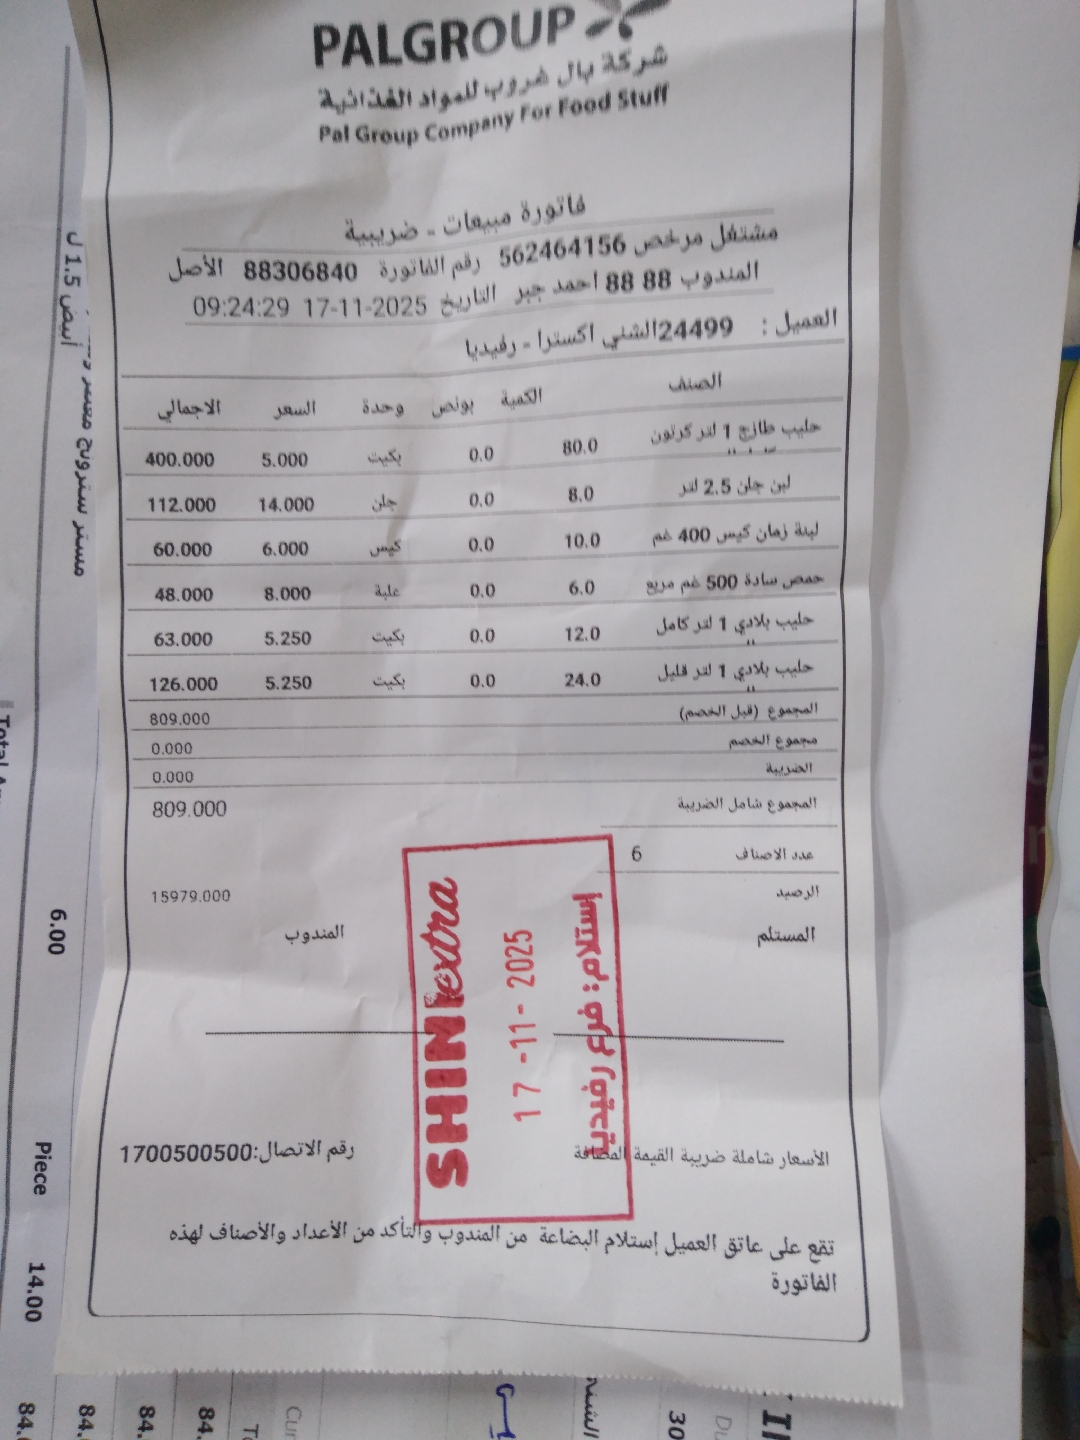 PALGROUP
شركة بال غروب للمواد الغذائية
Pal Group Company For Food Stuff
فاتورة مبيعات - ضريبية
مشتغل مرخص 562464156 رقم الفاتورة 88306840 الأصل
المندوب 88 88 احمد جبر التاريخ 17-11-2025 09:24:29
العميل : 24499الشني اكسترا - رفيديا
الصنف الكمية بونص وحدة السعر الاجمالي
حليب طازج 1 لتر كرتون 80.0 0.0 بكيت 5.000 400.000
لبن جلن 2.5 لتر 8.0 0.0 جلن 14.000 112.000
لبنة زمان كيس 400 غم 10.0 0.0 كيس 6.000 60.000
حمص سادة 500 غم مربع 6.0 0.0 علبة 8.000 48.000
حليب بلادي 1 لتر كامل 12.0 0.0 بكيت 5.250 63.000
حليب بلادي 1 لتر قليل 24.0 0.0 بكيت 5.250 126.000
المجموع (قبل الخصم) 809.000
مجموع الخصم 0.000
الضريبة 0.000
المجموع شامل الضريبة 809.000
عدد الاصناف 6
الرصيد 15979.000
المستلم المندوب
SHINI extra
17 -11- 2025
إستلام: فرع رفيديا
الأسعار شاملة ضريبة القيمة المضافة رقم الاتصال:1700500500
تقع على عاتق العميل إستلام البضاعة من المندوب والتأكد من الأعداد والأصناف لهذه
الفاتورة
أبيض 1.5 ل
مستر سترونج معطر
6.00
Piece
14.00
84.
84.
84.
84.
30